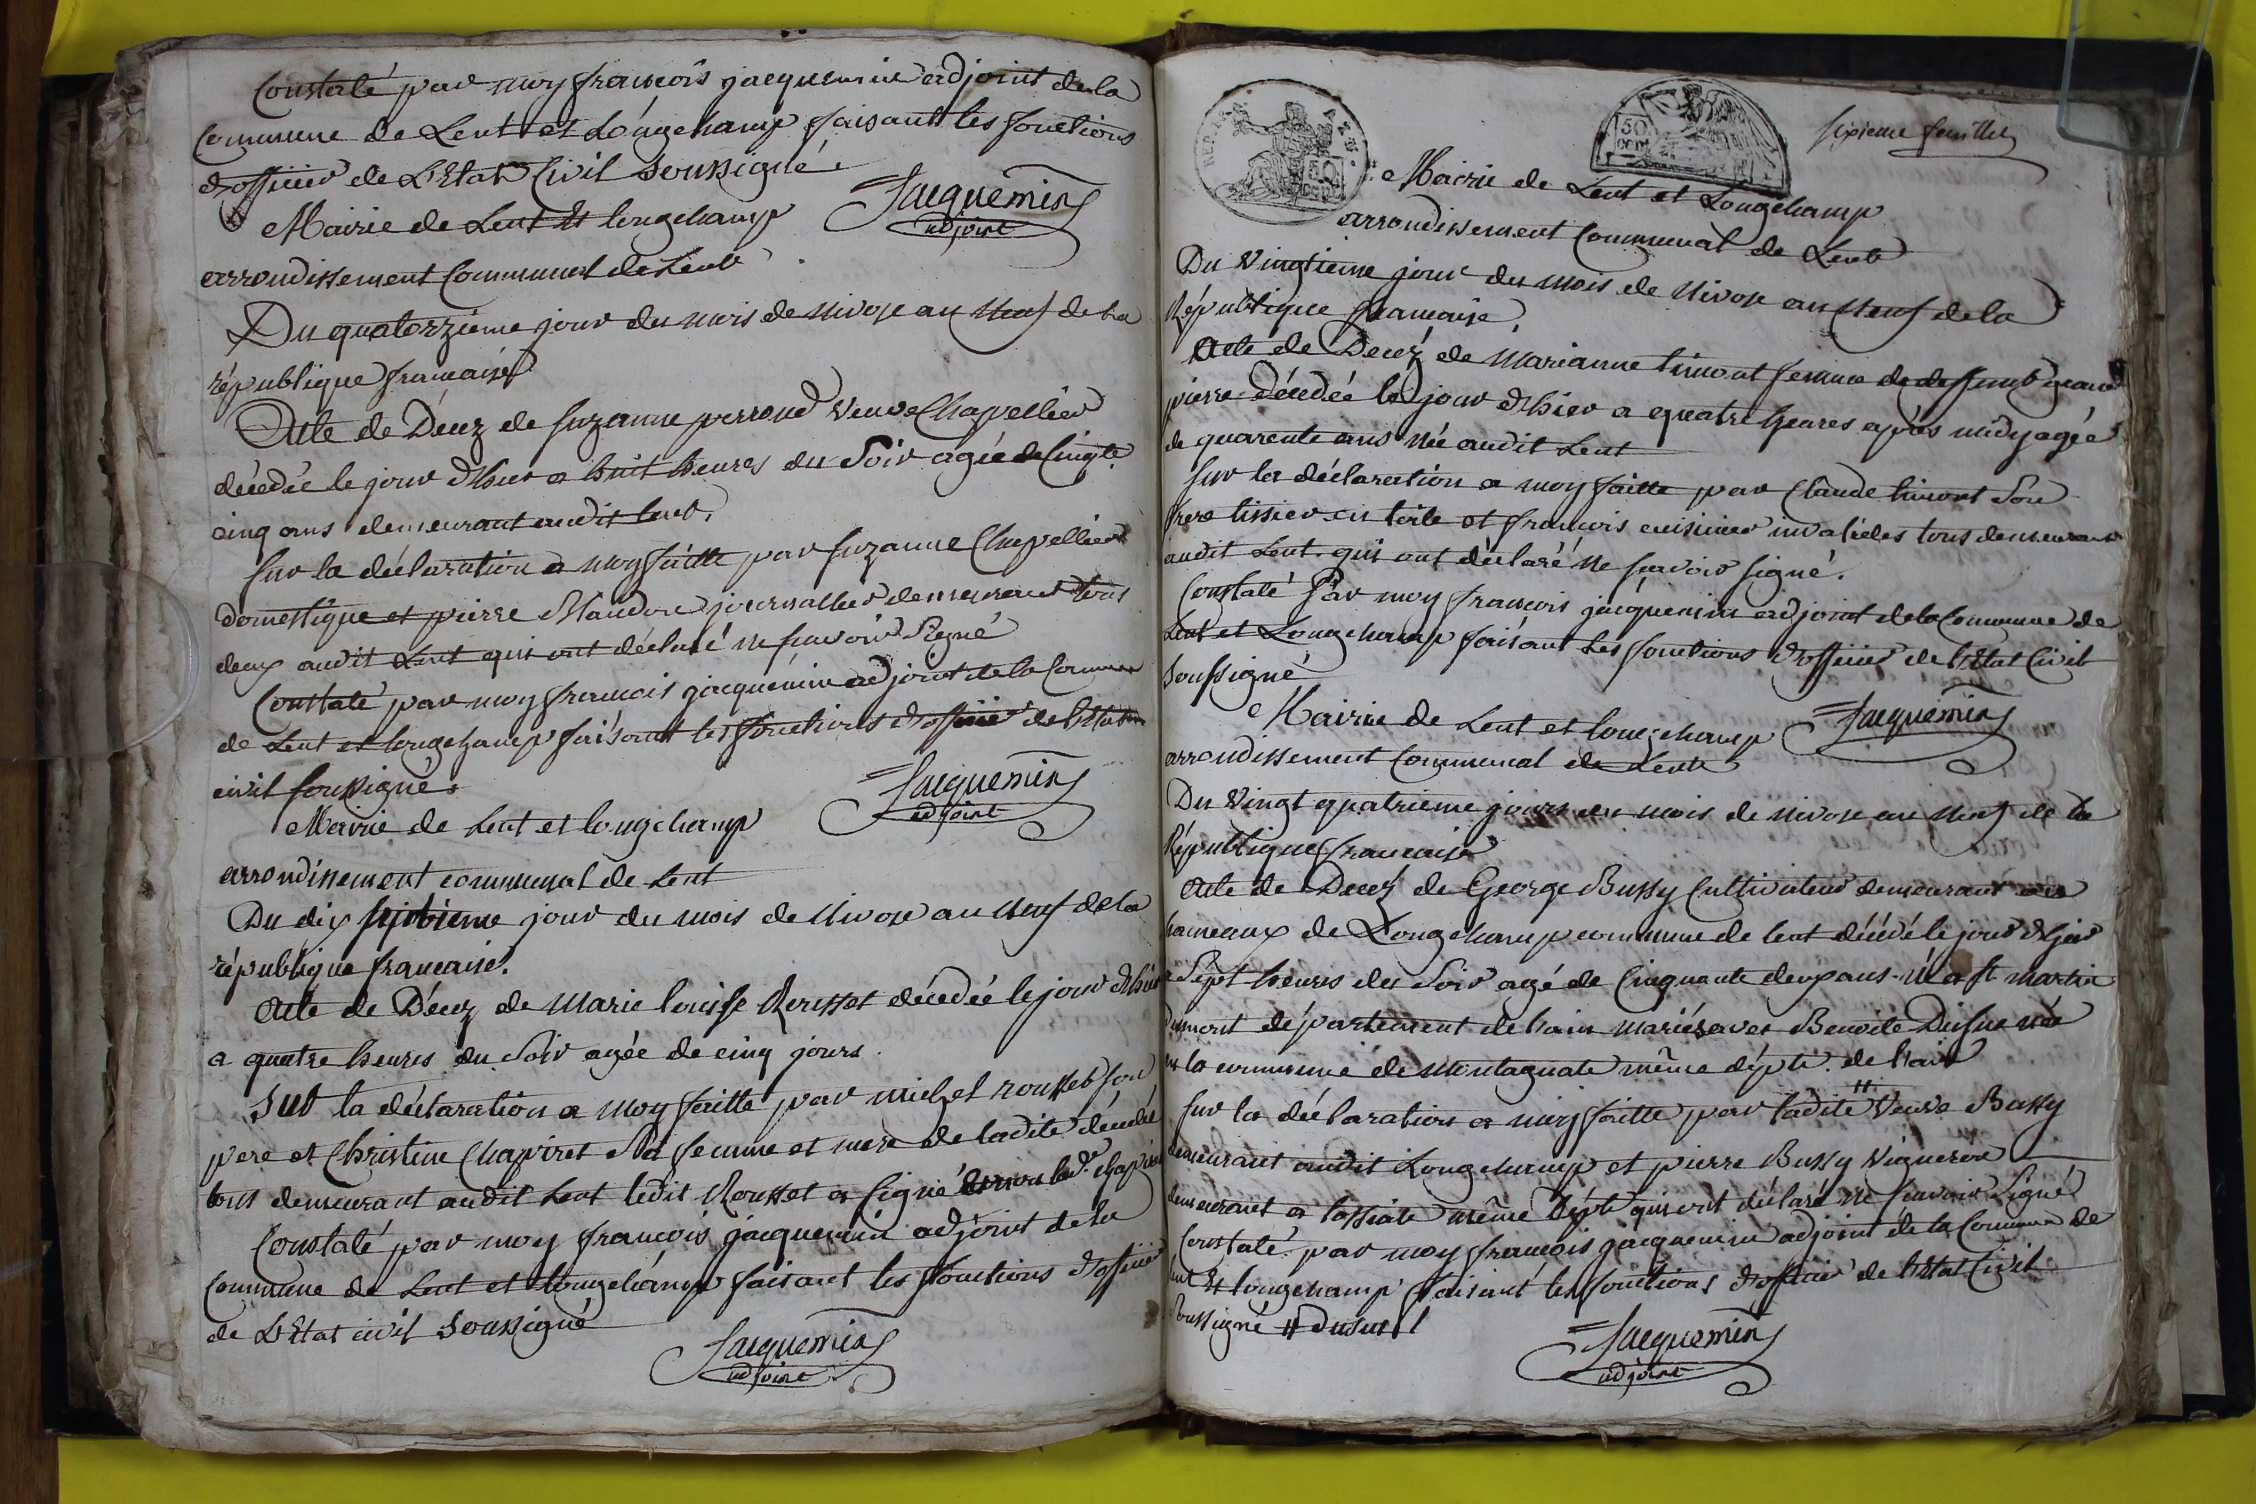 Constaté par moy françois jacquemin adjoint de la
Commune de Lent et Longchamp faisant les fonctions
d'officier de L'Etat Civil soussigné
Jacquemin
adjoint
Mairie de Lent Et longchamp
arrondissement Communal de Lent
Du quatorzieme jour du mois de nivose an neuf de la
république francaise
Acte de Décez de suzanne perroud veuve Chapellier
décédée le jour d'hier a huit heures du Soir agée de Cinqte
cinq ans demeurant audit lent.
sur la déclaration a moy faitte par suzanne Chapellier
domestique et pierre journallier demeurant tous
deux audit Lent qui ont déclaré ne savoir Signé
Constaté par moy francois jacquemin adjoint de la Commune
de Lent et longchamp faisant les fonctions d'officier de l'Etat
civil soussigné.
Jacquemin
adjoint
Mairie de Lent et longchamp
arrondissement communal de Lent
Du dix septieme jour du mois de Nivose an neuf de la
république francaise.
Acte de Décez de Marie louisse Rousset décédée le jour d'hier
a quatre heures du Soir agée de cinq jours.
sur la déclaration a moy faitte par michel rousset son
pere et Christine Chapiret sa femme et mere de ladite décédée
tous demeurant audit Lent ledit Rousset a signé et non lad.e chapiret
Constaté par moy françois jacquemin adjoint de la
Commune de Lent et Longchamp faisant les fonctions d'officier
de L'Etat civil soussigné
Jacquemin
adjoint
sixieme feuillet
REP. FRA.
50
CEN
50
CEN
Mairie de Lent et Longchamp
arrondissement Communal de Lent
Du vingtieme jour du mois de nivose an neuf de la
République francaise.
Acte de Decez de marianne limont femme de deffunt grand
pierre décédée le jour d'hier a quatre heures après midy agée
de quarente ans née audit Lent
sur la déclaration a moy faitte par Claude limont Son
frere tissier en toile et francois cuisinier invalides tous demeurant
audit Lent. qui ont déclaré ne savoir signé.
Constaté Par moy francois jacquemin adjoint de la Commune de
Lent et Longchamp faisant les fonctions d'officier de l'Etat Civil
soussigné
Jacquemin
Mairie de Lent et longchamp
arrondissement Communal de Lent
Du Vingt quatrieme jour du mois de nivose an neuf de la
République francaise
Acte de Decez de George Bussy Cultivateur demeurant au
hameaux de Longchamp commune de lent décédé le jour d'hier
a Sept heures du Soir agé de Cinquante deux ans né a st martin
Dumont département de l'ain mariés avec Benoite née
en la commune de montagnate même dépt. de l'ain
sur la déclaration a moy faitte par ladite " veuve Bussy
demeurant audit Longchamp et pierre Bussy vigneron
demeurant a même dépt qui ont déclaré ne savoir Signé
Constaté par moy françois jacquemin adjoint de la Commune de
lent Et longchamp faisant les fonctions d'officier de l'Etat Civil
soussigné
Jacquemin
adjoint